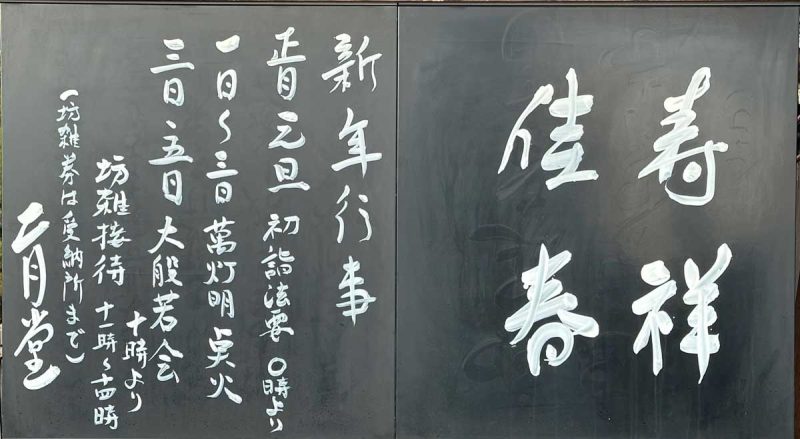 寿祥
佳春
新年行事
正月元旦 初詣法要 〇時より
一日〜三日 萬灯明点火
三日、五日 大般若会
十時より
坊雑接待 十一時〜十四時
(坊雑券は受納所まで)
二月堂